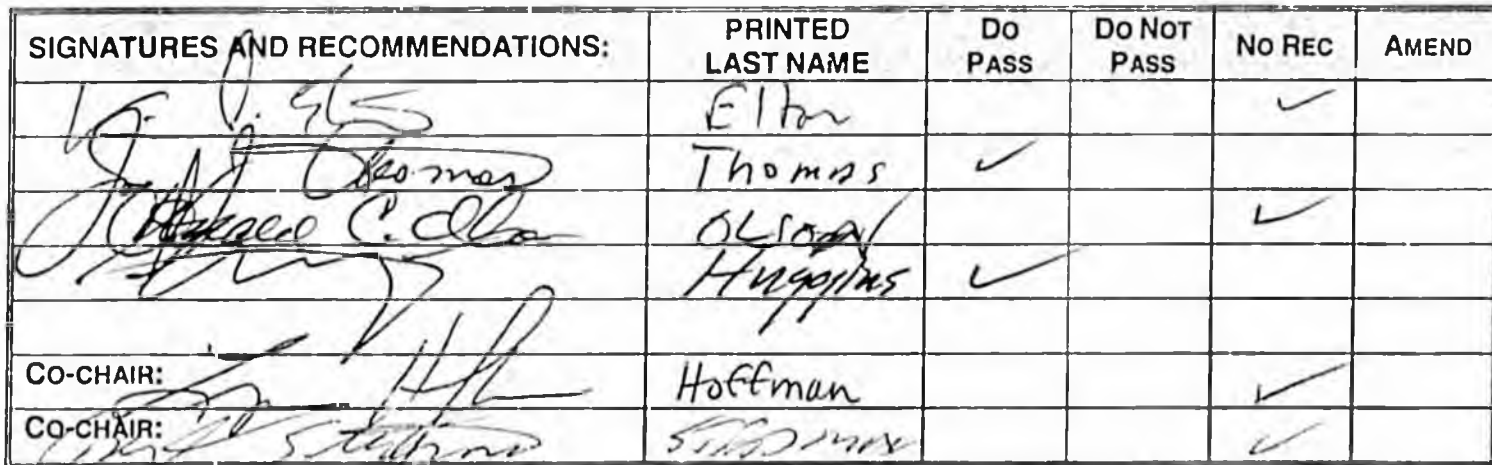 SIGNATURES AND RECOMMENDATIONS: PRINTED LAST NAME DO PASS DO NOT PASS NO REC AMEND
Elton ✓
Thomas Thomas ✓
C. Olson OLSON ✓
Huggins ✓
CO-CHAIR: Hoffman ✓
CO-CHAIR: ✓